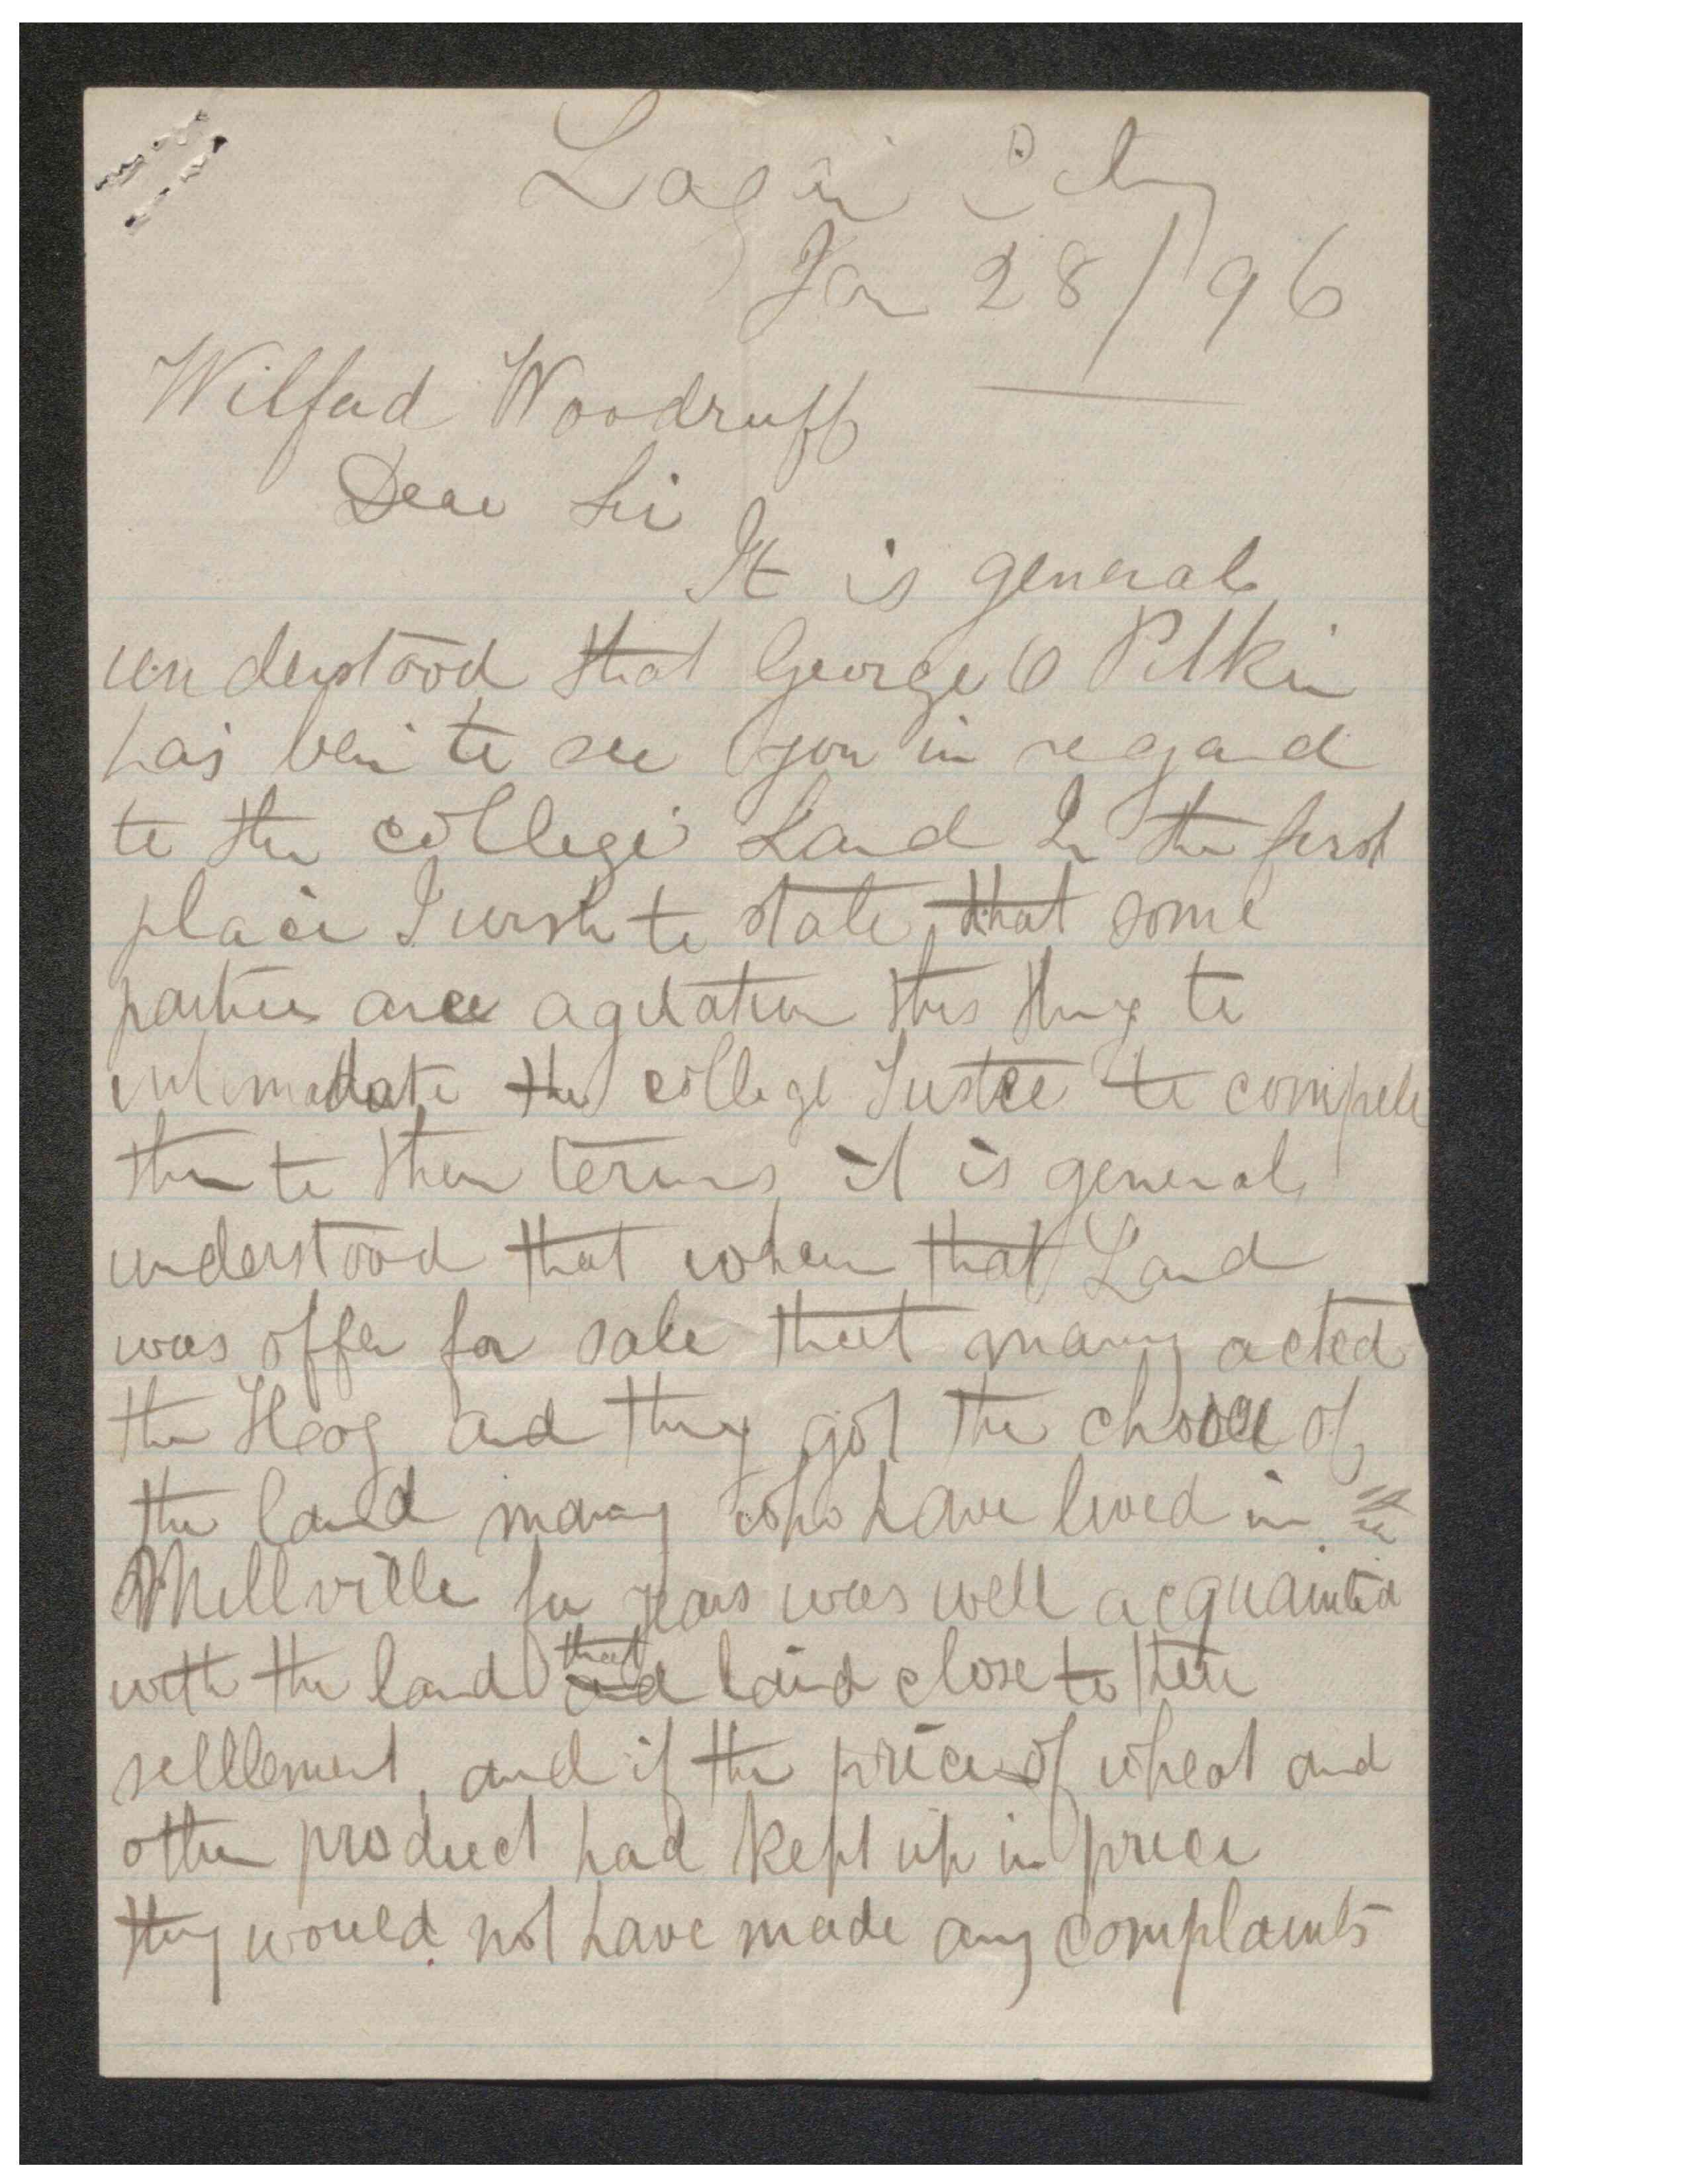 Logan City
Jan 28/96
Wilfad Woodruff
Dear Sir
It is general
understood that George O Pitkin
has bein to see you in regard
to the college Land In the first
place I wish to state that some
parties are agitaten this thing to
intimadate the college Tustee to compele
them to their terms, it is general
understood that when that Land
was offer for sale that many acted
the Hog and they got the choice of
the land many who have lived in
Millville for years was well acquainted
with the land that land close to there
settlement, and if the price of wheat and
other product had kept up in price
they would not have made any complaints